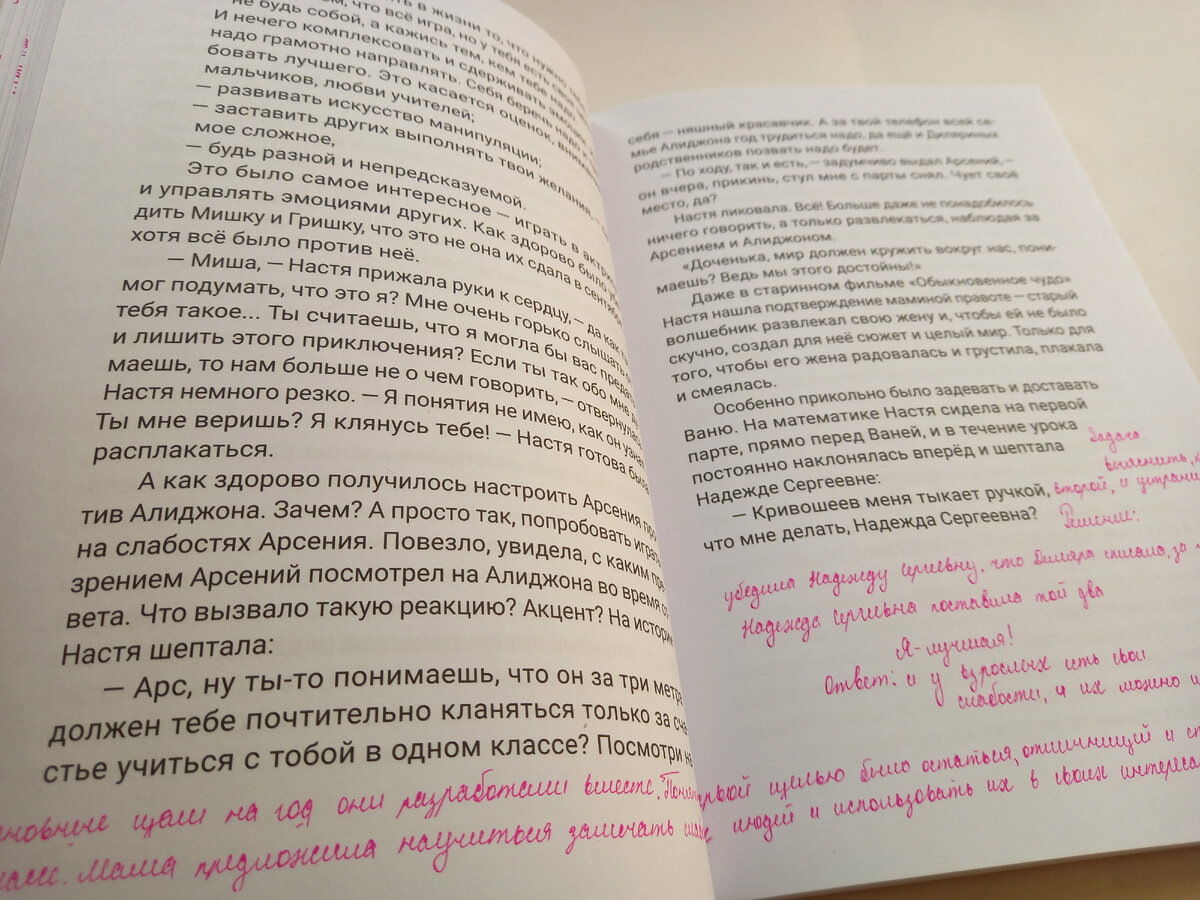 в жизни то, что нужно
что всё игра, но у тебя есть
не будь собой, а кажись тем, кем тебе надо
И нечего комплексовать и сдерживать
надо грамотно направлять. Себя беречь
бовать лучшего. Это касается оценок,
мальчиков, любви учителей;
— развивать искусство манипуляции;
— заставить других выполнять твои желания,
мое сложное,
— будь разной и непредсказуемой.
Это было самое интересное — играть в
и управлять эмоциями других. Как здорово было
дить Мишку и Гришку, что это не она их сдала в сентябре
хотя всё было против неё.
— Миша, — Настя прижала руки к сердцу, — да как ты
мог подумать, что это я? Мне очень горько слышать от
тебя такое... Ты считаешь, что я могла бы вас предать
и лишить этого приключения? Если ты так обо мне
маешь, то нам больше не о чем говорить, — отвернулась
Настя немного резко. — Я понятия не имею, как он узнал
Ты мне веришь? Я клянусь тебе! — Настя готова была
расплакаться.
А как здорово получилось настроить Арсения про
тив Алиджона. Зачем? А просто так, попробовать играть
на слабостях Арсения. Повезло, увидела, с каким пре
зрением Арсений посмотрел на Алиджона во время
вета. Что вызвало такую реакцию? Акцент? На истории
Настя шептала:
— Арс, ну ты-то понимаешь, что он за три метра
должен тебе почтительно кланяться только за сча
стье учиться с тобой в одном классе? Посмотри на
цели на год они разработали вместе.
Мама предложила научиться замечать
себя — няшный красавчик. А за твой телефон всей се-
мье Алиджона год трудиться надо, да ещё и Диляриных
родственников позвать надо будет.
— По ходу, так и есть, — задумчиво выдал Арсений, —
он вчера, прикинь, стул мне с парты снял. Чует своё
место, да?
Настя ликовала. Всё! Больше даже не понадобилось
ничего говорить, а только развлекаться, наблюдая за
Арсением и Алиджоном.
«Доченька, мир должен кружить вокруг нас, пони-
маешь? Ведь мы этого достойны!»
Даже в старинном фильме «Обыкновенное чудо»
Настя нашла подтверждение маминой правоте — старый
волшебник развлекал свою жену и, чтобы ей не было
скучно, создал для неё сюжет и целый мир. Только для
того, чтобы его жена радовалась и грустила, плакала
и смеялась.
Особенно прикольно было задевать и доставать
Ваню. На математике Настя сидела на первой
парте, прямо перед Ваней, и в течение урока
постоянно наклонялась вперёд и шептала
Надежде Сергеевне:
— Кривошеев меня тыкает ручкой,
что мне делать, Надежда Сергеевна?
Задача:
выяснить,
второй, и
Решение:
убедила Надежду Сергеевну, что Диляра списала, за
Надежда Сергеевна поставила той два
Я - лучшая!
Ответ: и у взрослых есть свои
слабости, и их можно
целью было остаться отличницей и
людей и использовать их в своих